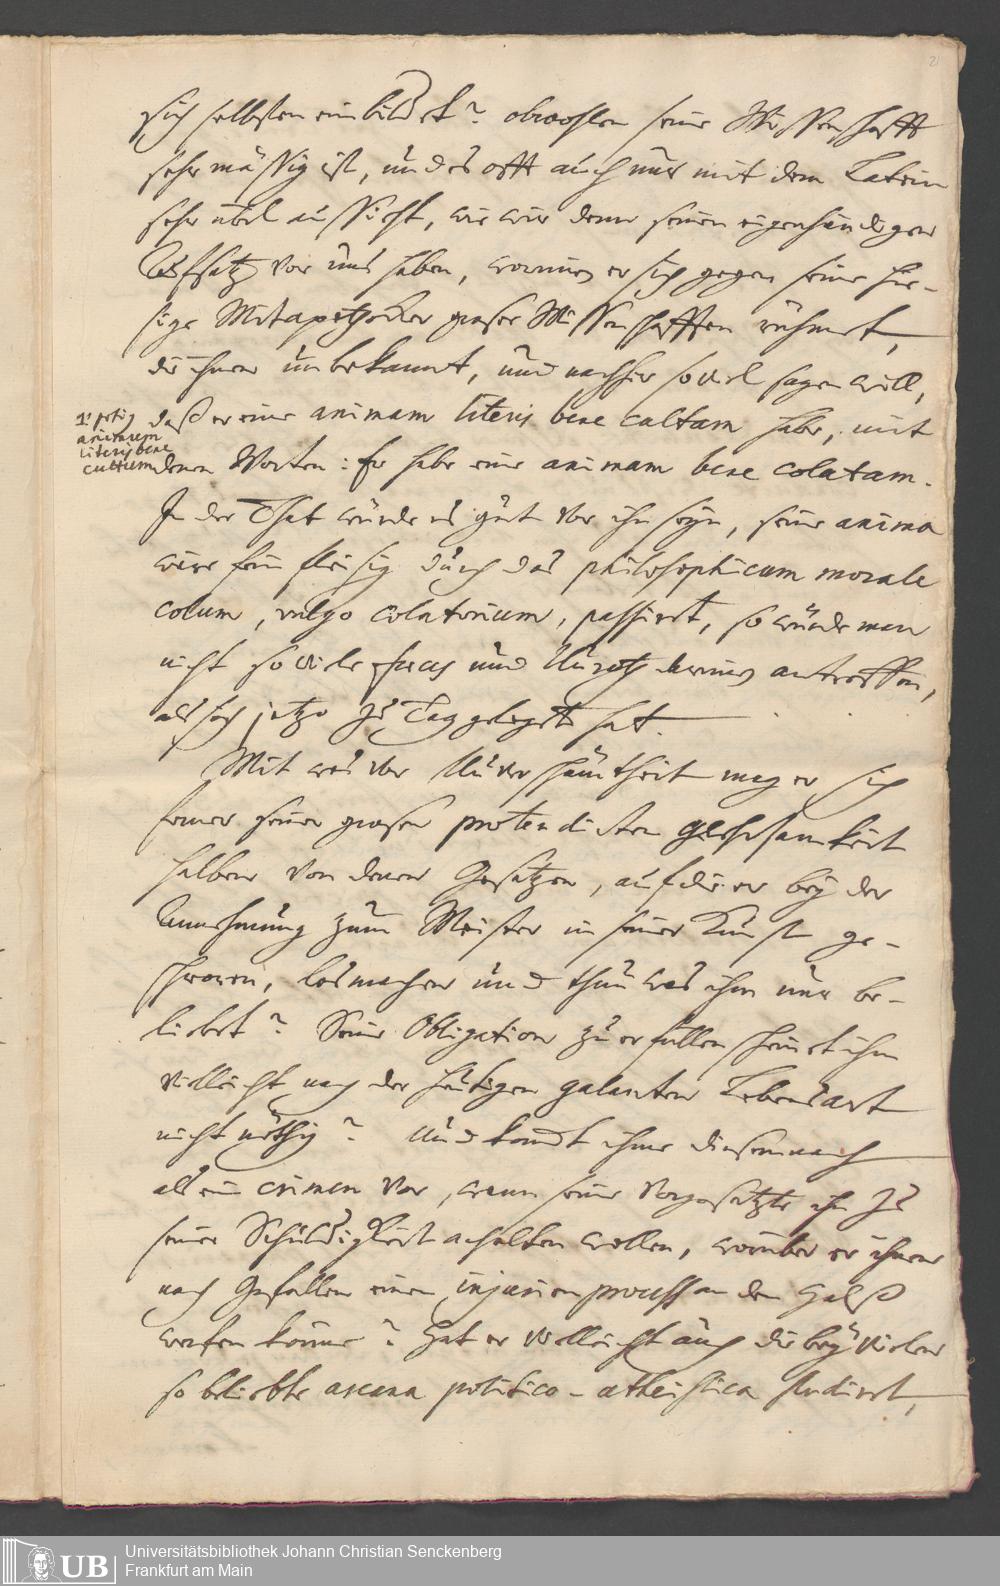 2
sich selbsten einbildet? obwohlen seine Wissenschafft
sehr mässig ist, und es offt auch nur mit dem Latein
sehr übel aussieht, wie wir denn seinen eigenhändigen
Aufsatz vor uns haben, worinnen er sich gegen seine hie-
sige Mitapothecker groser Wissenschafften rühmet,
die ihnen unbekannt, und nachher soviel sagen will,
daß er eine animam literis bene cultam habe, mit
1. potig
animam
literis bene
cultam
denen Worten: Er habe eine animam bene colatam.
In der That würde es gut vor ihn seyn, seine anima
wäre fein fleisig durch das philosophicum morale
colum, vulgo colatorium, passiret, so würde man
nicht so viele faeces und Unrath darinnen antreffen,
als sich jetzo zu Tag gelegt hat.
Mit was vor Unverschämtheit mag er sich
ferner seiner grosen prätendirten gelehrsamkeit
halben von denen Gesetzen, auf die er bey der
Annehmung zum Meister in seiner Kunst ge-
schworen, losmachen und thun was ihm nur be-
liebet? Seine Obligation zu erfüllen scheinet ihm
vielleicht nach der heutigen galanten Lebensart
nicht nöthig? Und komt ihme diesemnach
als ein crimen vor, wann seine Vorgesetzte ihn zu
seiner Schuldigkeit anhalten wollen, worüber er ihnen
nach Gefallen einen injurien process an den Halß
werfen könne? Hat er vielleicht auch die bey vielen
so beliebte arcana politico-atheistica studiret,
UB
Universitätsbibliothek Johann Christian Senckenberg
Frankfurt am Main